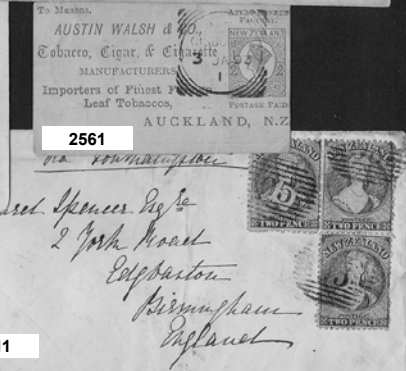 To Messrs.
AUSTIN WALSH & CO.,
Tobacco, Cigar, & Cigarette
MANUFACTURERS
Importers of Finest
Leaf Tobaccos,
AUCKLAND, N.Z.
NEW ZEALAND
POSTAGE PAID
3
1
2561
via Southampton
Spencer Esqre
2 York Road
Edgbaston
Birmingham
England
NEW ZEALAND
5
TWO PENCE
NEW ZEALAND
POSTAGE
TWO PENCE
NEW ZEALAND
POSTAGE
TWO PENCE